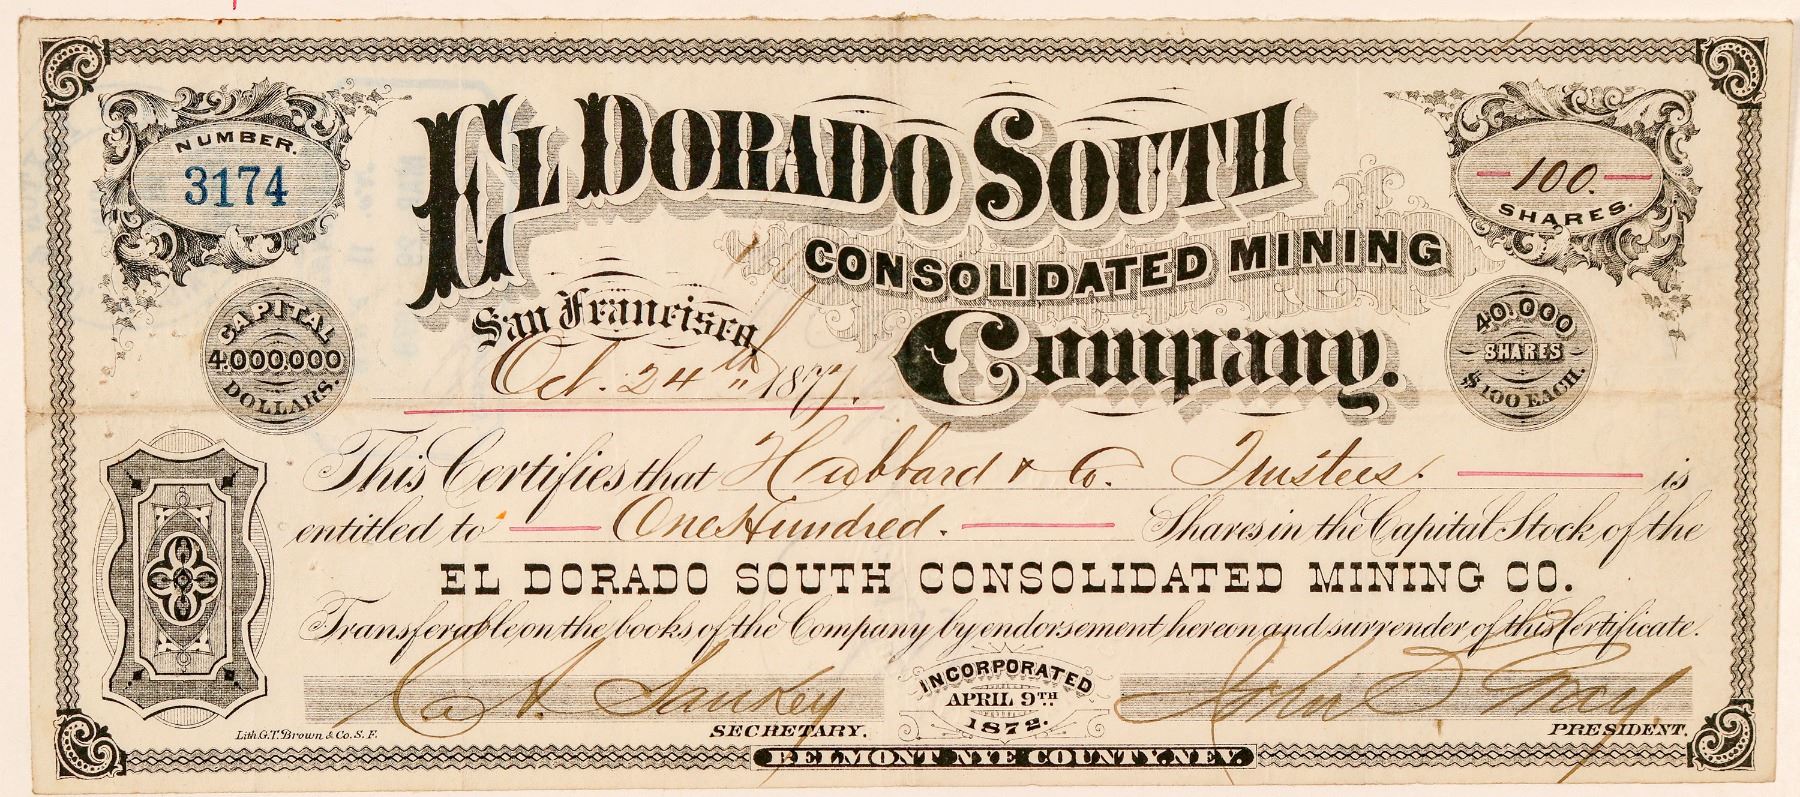 NUMBER.
3174
EL DORADO SOUTH
CONSOLIDATED MINING
Company.
100.
SHARES.
CAPITAL
4.000.000
DOLLARS.
San Francisco,
Oct. 24th 1877.
40.000
SHARES
$100 EACH.
This Certifies that Hubbard & Co. Trustees. is
entitled to One Hundred. Shares in the Capital Stock of the
EL DORADO SOUTH CONSOLIDATED MINING CO.
Transferable on the books of the Company by endorsement hereon and surrender of this Certificate.
INCORPORATED
APRIL 9TH
1872.
Sankey
SECRETARY.
John D Gray
PRESIDENT.
Lith. G.T. Brown & Co. S. F.
BELMONT NYE COUNTY. NEV.